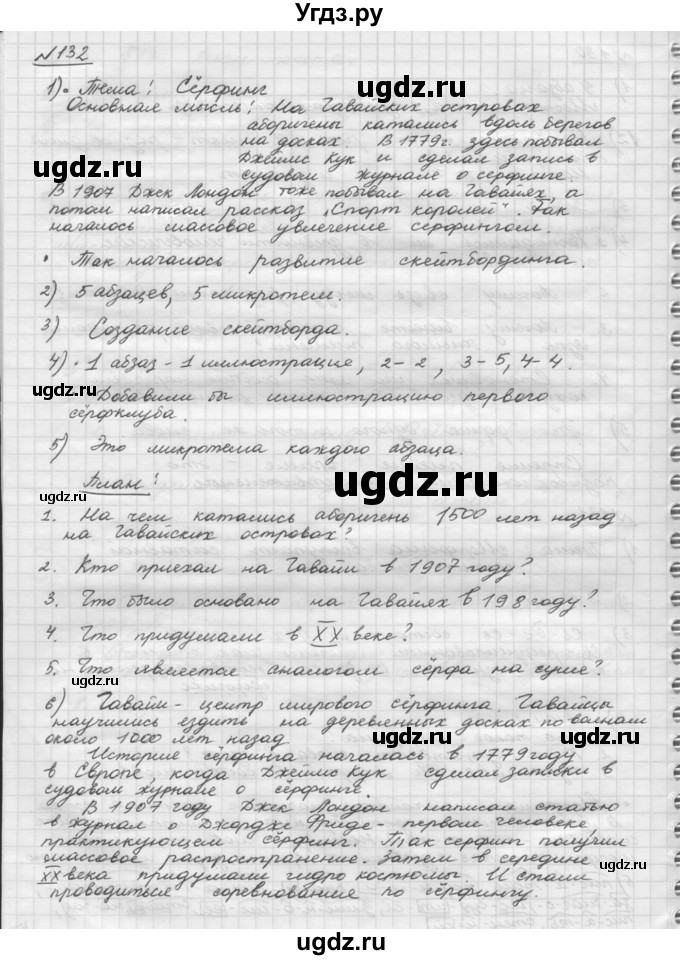 Угдз.ру
№132
1) • Тема: Сёрфинг
Основная мысль: На Гавайских островах
аборигены катались вдоль берегов
на досках. В 1779г. здесь побывал
Джеймс Кук и сделал запись в
судовом журнале о серфинге.
В 1907 Джек Лондон тоже побывал на Гавайях, а
потом написал рассказ „Спорт королей". Так
началось массовое увлечение серфингом.
• Так началось развитие скейтбординга.
2) 5 абзацев, 5 микротем.
3) Создание скейтборда.
4) • 1 абзаз - 1 иллюстрацие, 2-2, 3-5, 4-4.
Добавили бы иллюстрацию первого
сёрфклуба.
5) Это микротема каждого абзаца.
План:
1. На чем катались аборигень 1500 лет назад
на Гавайских островах?
2. Кто приехал на Гавайи в 1907 году?
3. Что было основано на Гавайях в 198 году?
4. Что придумали в XX веке?
5. Что является аналогом сёрфа на суше?
6) Гавайи - центр мирового сёрфинга. Гавайцы
научились ездить на деревленных досках по валнам
около 1000 лет назад
Историе сёрфинга началась в 1779 году
в Европе, когда Джеймс Кук сделал записки в
судовом журнале о сёрфинге.
В 1907 году Джек Лондон написал статью
в журнал о Джордже Фриде - первом человеке
практикующем сёрфинг. Так серфинг получил
массовое распространение. Затем в середине
XX века придумали гидро костюмы. И стали
проводиться соревнование по сёрфингу.
ugdz.ru
ugdz.ru
ugdz.ru
ugdz.ru
ugdz.ru
ugdz.ru
ugdz.ru
ugdz.ru
ugdz.ru
ugdz.ru
ugdz.ru
ugdz.ru